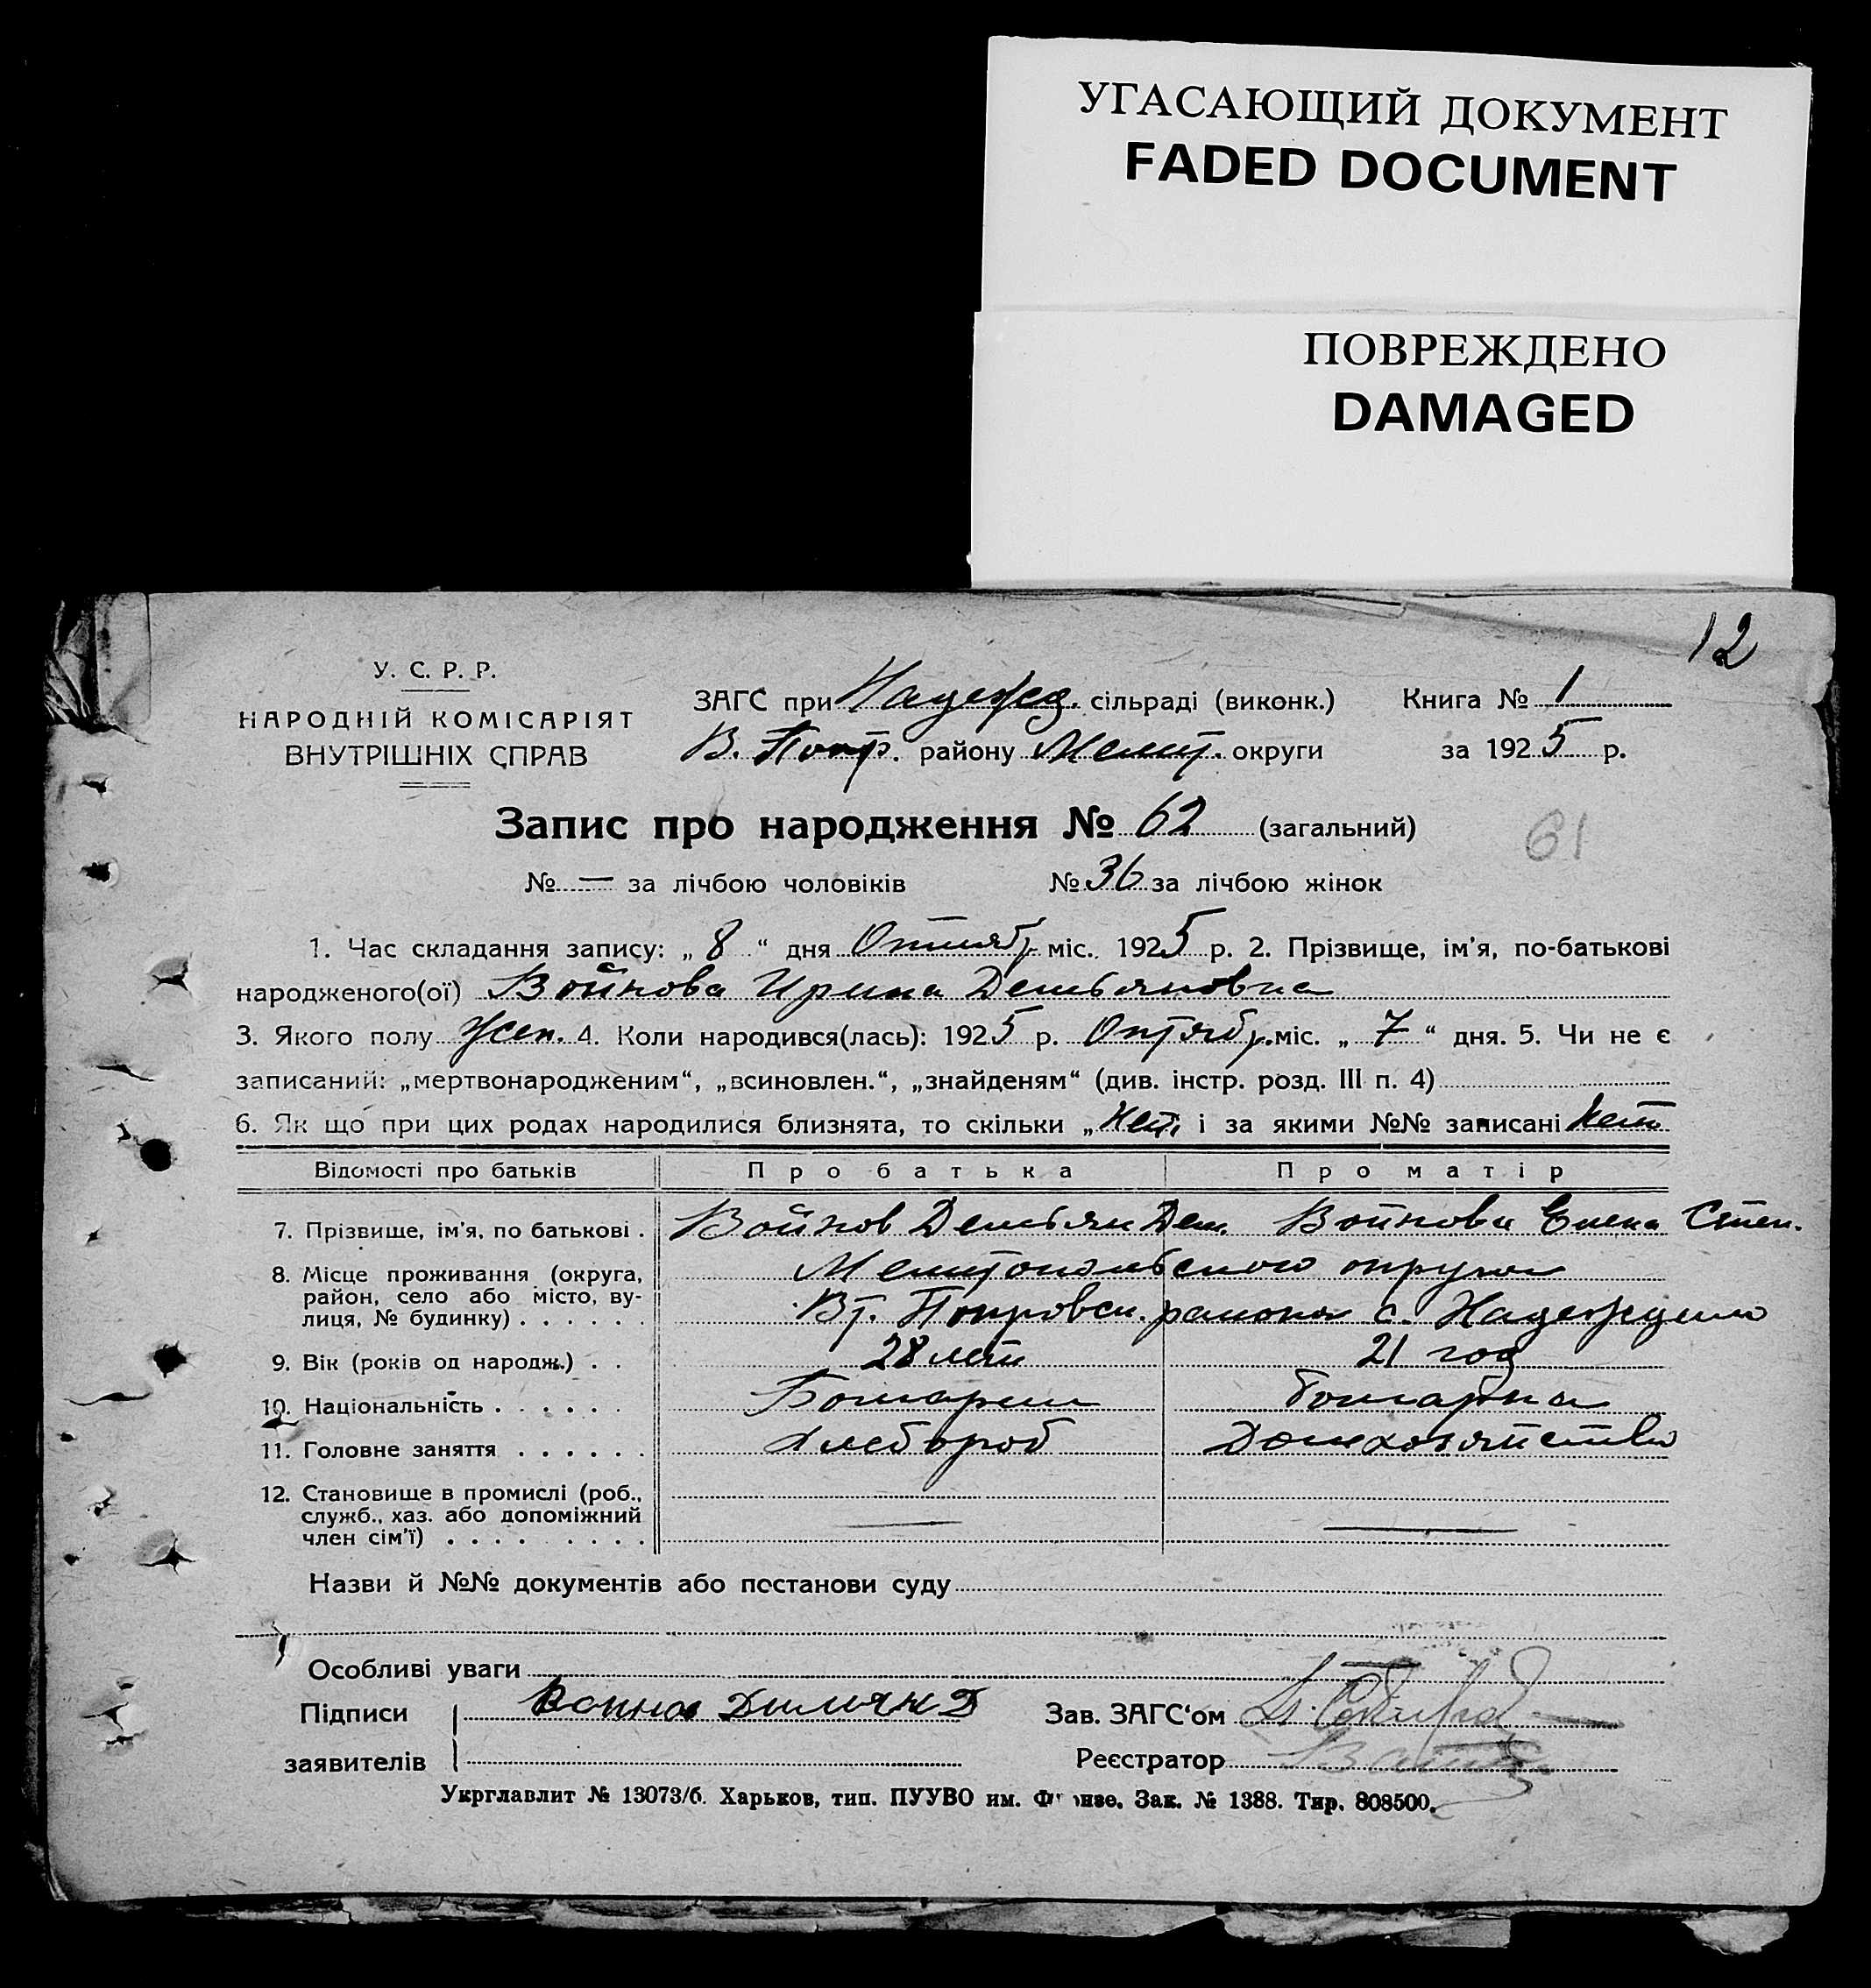 УГАСАЮЩИЙ ДОКУМЕНТ
FADED DOCUMENT
ПОВРЕЖДЕНО
DAMAGED
12
У. С. Р. Р.
НАРОДНІЙ КОМІСАРІЯТ
ВНУТРІШНІХ СПРАВ
ЗАГС при Надежд. сільраді (виконк.) Книга № 1
В. Покр. району Мелит. округи за 1925 р.
Запис про народження № 62 (загальний)
61
№ — за лічбою чоловіків № 36 за лічбою жінок
1. Час складання запису: „ 8 “ дня Октябр міс. 1925 р. 2. Прізвище, ім'я, по-батькові
народженого(ої) Войнова Ирина Демьяновна
3. Якого полу жен. 4. Коли народився(лась): 1925 р. Октябр. міс. „ 7 “ дня. 5. Чи не є
записаний: „мертвонародженим“, „всиновлен.“, „знайденям“ (див. інстр. розд. III п. 4)
6. Як що при цих родах народилися близнята, то скільки „ Нет, і за якими №№ записані Нет
Відомості про батьків Про батька Про матір
7. Прізвище, ім'я, по батькові . Войнов Демьян Дем. Войнова Елена Степ.
8. Місце проживання (округа, район, село або місто, вулиця, № будинку) . . . . . . Мелитопольского округа
Вт. Покровск. района с. Надеждино
9. Вік (років од народж.) . . 28 лет 21 год
10. Національність . . . . . . Болгарин болгарка
11. Головне заняття . . . . . . Хлебороб Домхозяйство
12. Становище в промислі (роб., служб., хаз. або допоміжний член сім'ї) . . . . . . . . — —
Назви й №№ документів або постанови суду
Особливі уваги
Підписи Войнов Димян Д Зав. ЗАГС'ом
заявителів Реєстратор
Укрглавлит № 13073/б. Харьков, тип. ПУУВО им. Фрунзе. Зак. № 1388. Тир. 808500.